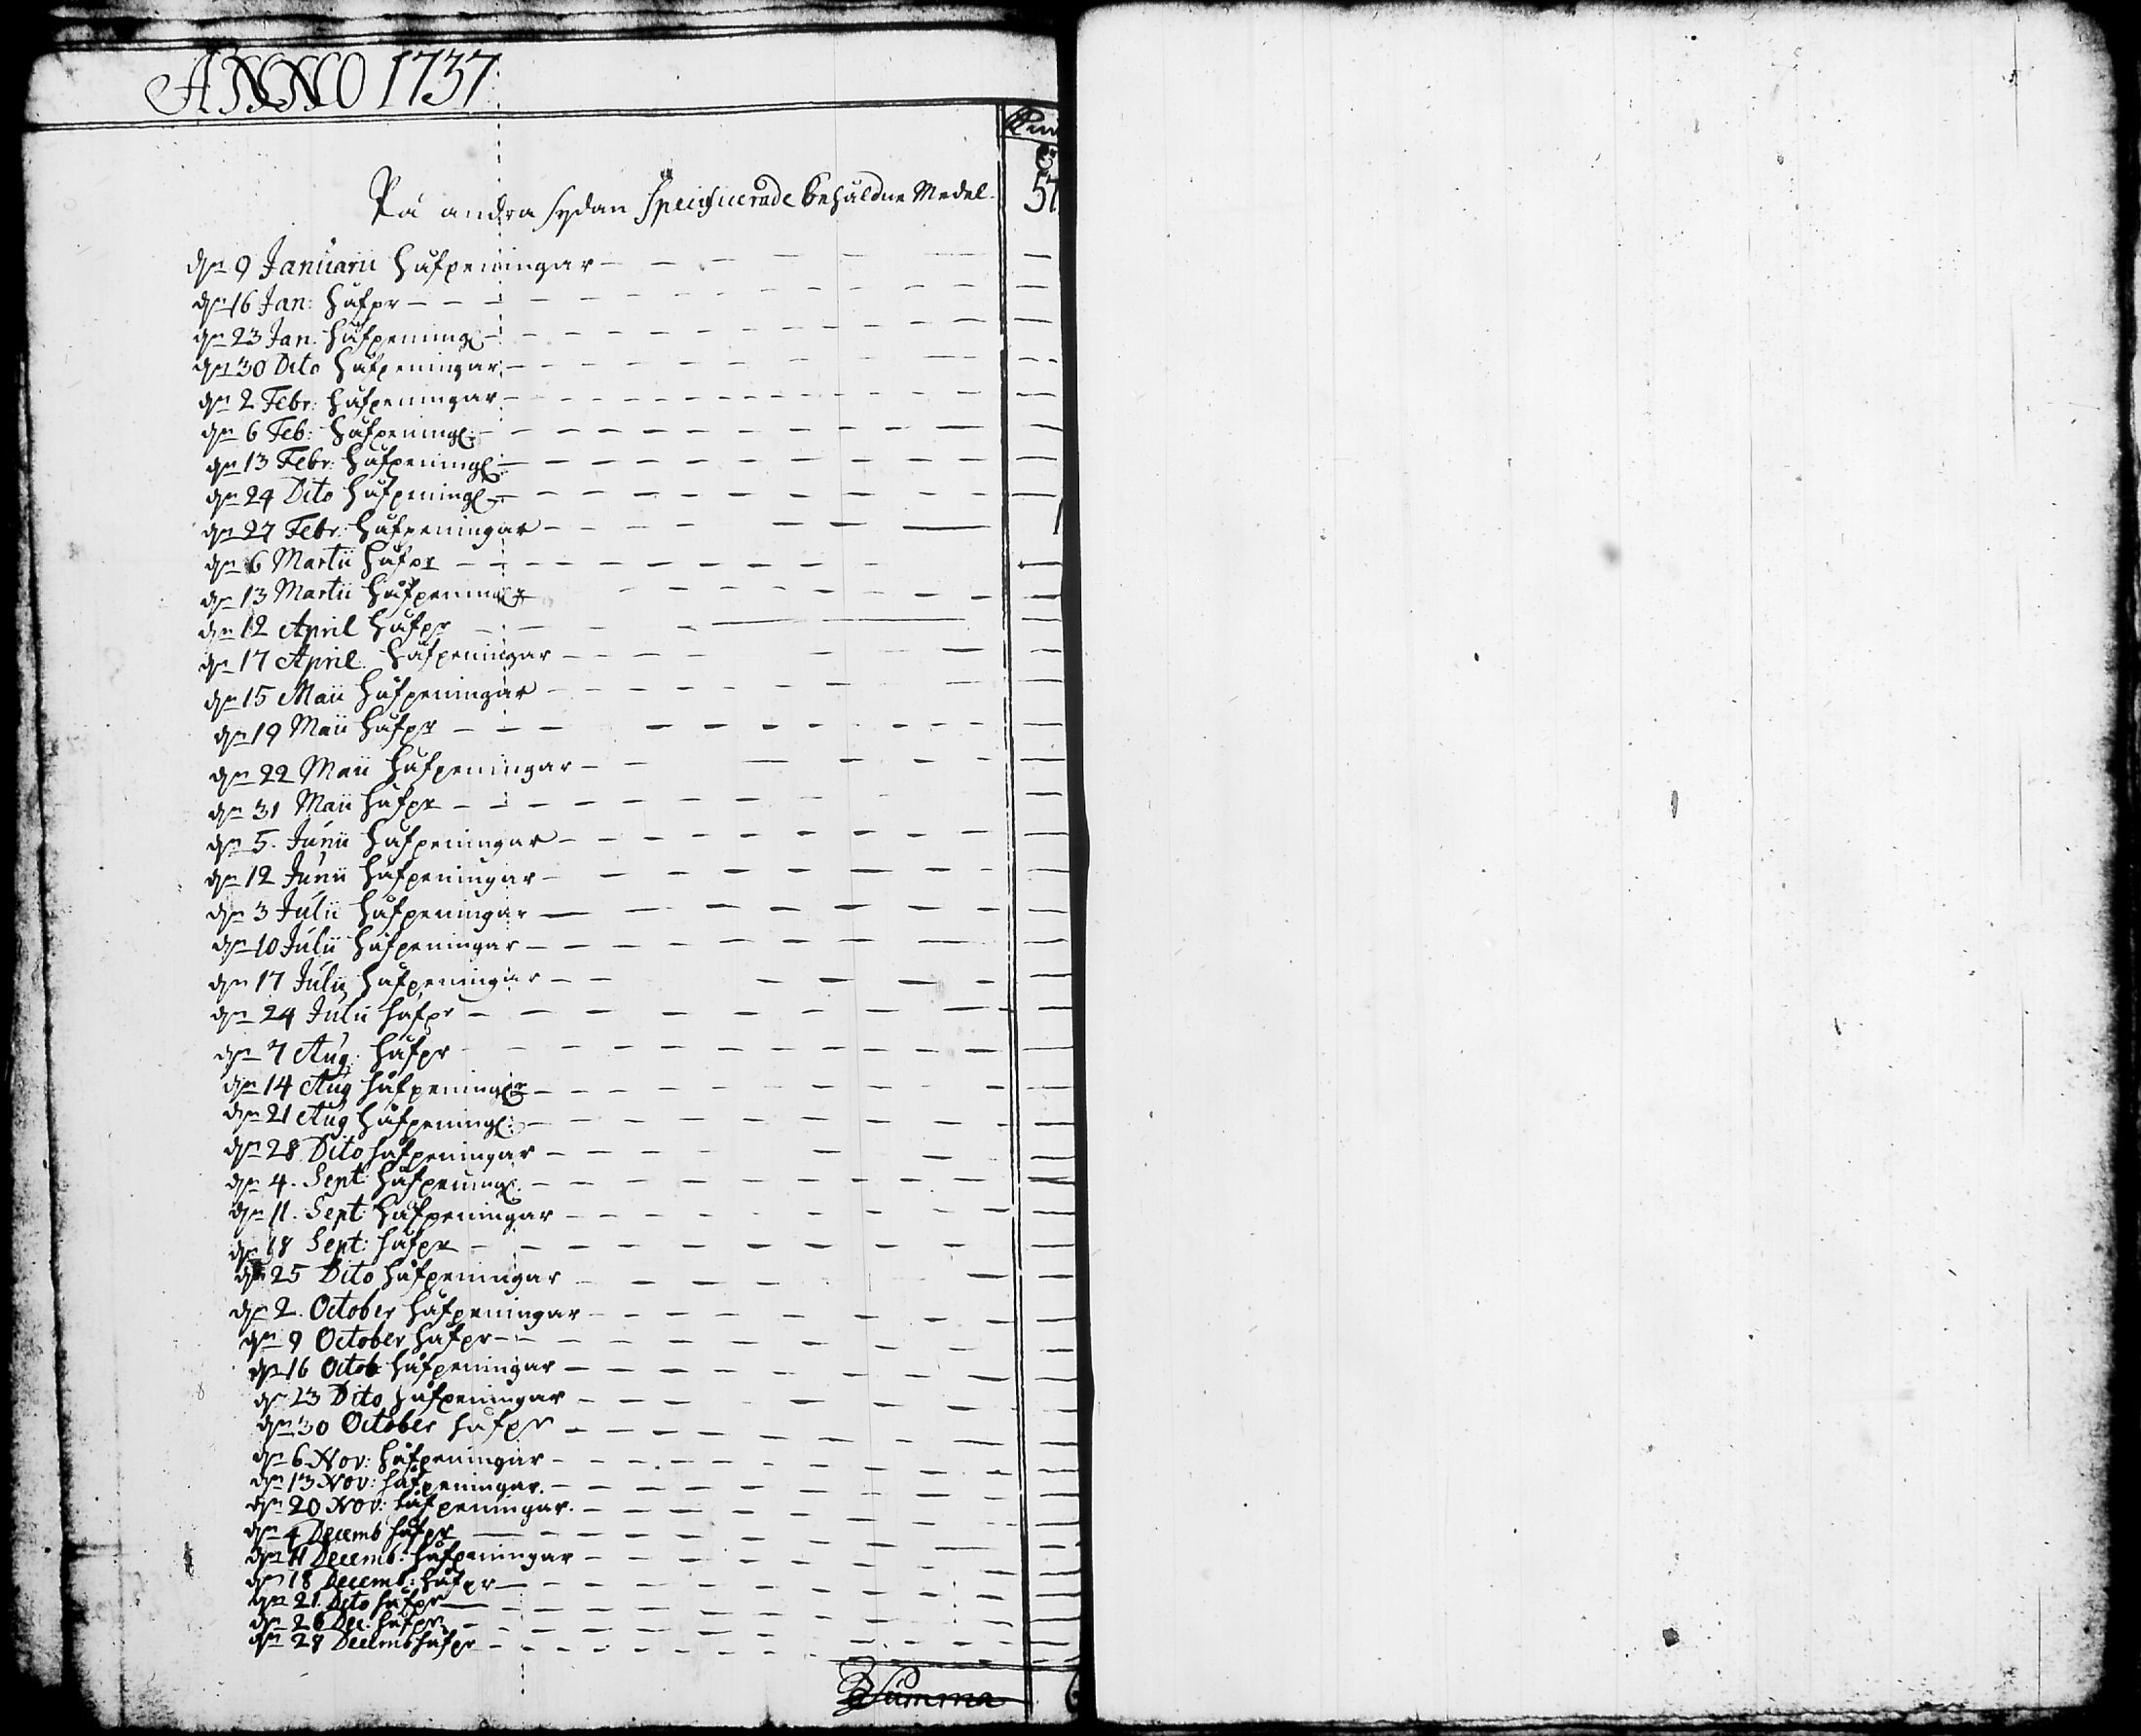 ANNO 1737
På andra sydan Specificerade behåldne Medel. 57
dn 9 Januarii håfpeningar
dn 16 Jan: håfpr
dn 23 Jan. håfpening
dn 30 Dito håfpeningar
dn 2 Febr: håfpeningar
dn 6 Feb: håfpening
dn 13 Febr: håfpening
dn 24 Dito håfpening
dn 27 Febr: håfpeningar 1
dn 6 Martii håfpr
dn 13 Martii håfpening
dn 12 April håfpr
dn 17 April. håfpeningar
dn 15 Maii håfpeningar
dn 19 Maii håfpr
dn 22 Maii håfpeningar
dn 31 Maii håfpr
dn 5. Junii håfpeningar
dn 12 Junii håfpeningar
dn 3 Julii håfpeningar
dn 10 Julii håfpeningar
dn 17 Julii håfpeningar
dn 24 Julii håfpr
dn 7 Aug: håfpr
dn 14 Aug håfpening
dn 21 Aug håfpening
dn 28 Dito håfpeningar
dn 4. Sept: håfpening
dn 11. Sept: håfpeningar
dn 18 Sept: håfpr
dn 25 Dito håfpeningar
dn 2. October håfpeningar
dn 9 October håfpr
dn 16 Octob håfpeningar
dn 23 Dito håfpeningar
dn 30 October håfpr
dn 6 Nov: håfpeningar
dn 13 Nov: håfpeningar.
dn 20 Nov: håfpeningar.
dn 4 Decemb håfpr
dn 11 Decemb: håfpeningar
dn 18 Decemb: håfpr
dn 21 Dito håfpr
dn 26 Dec. håfpr
dn 28 Decemb håfpr
Summa